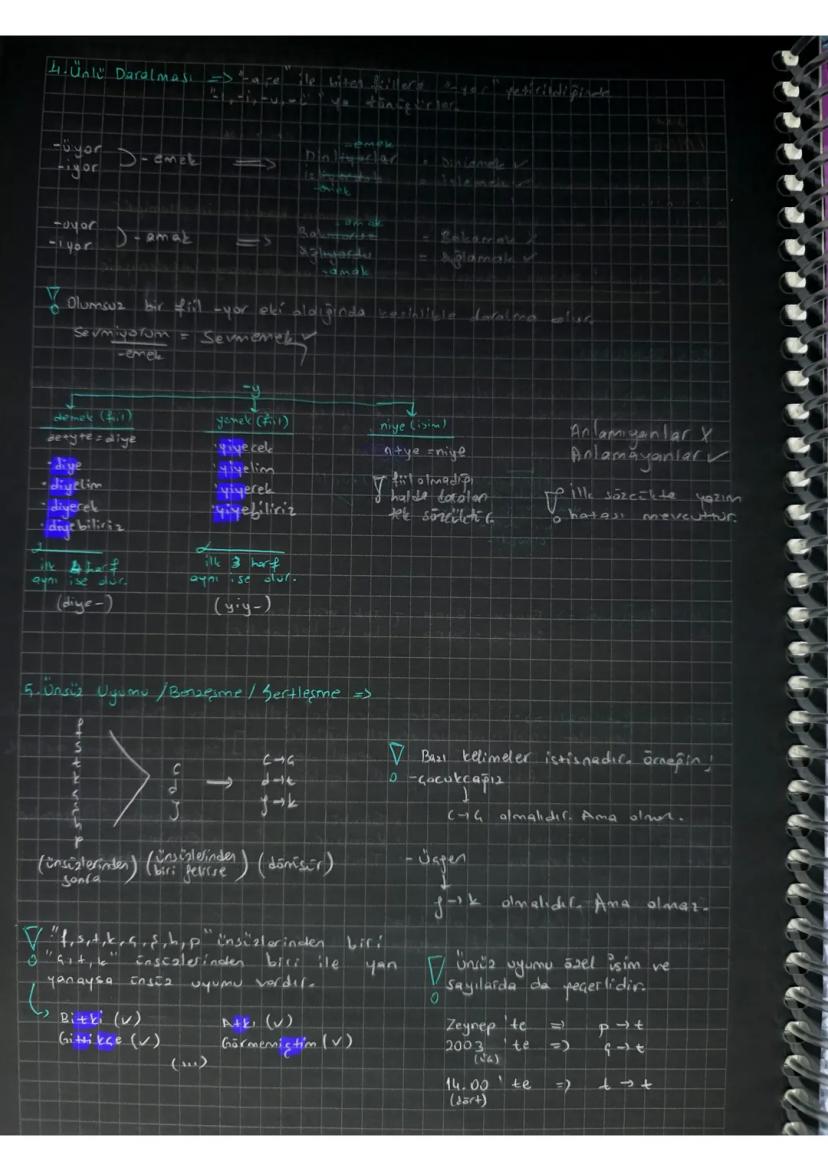 4. Ünlü Daralması => "-a, -e" ile biten fiillere "-yor" getirildiğinde
"-ı, -i, -u, -ü" ya dönüşürler.
-üyor
-iyor
-emek =>
-emek
Dinliyorlar = Dinlemek ✓
= İşlemek ✓
-emek
-uyor
-ıyor
-amak =>
-amak
= Bakamak X
= Ağlamak ✓
-amak
! Olumsuz bir fiil -yor eki aldığında kesinlikle daralma olur.
Sevmiyorum = Sevmemek ✓
-emek
-y
demek (fiil)
de+y+e = diye
• diye
• diyelim
• diyerek
• diyebiliriz
ilk 4 harf
aynı ise olur.
(diye-)
yemek (fiil)
• yiyecek
• yiyelim
• yiyerek
• yiyebiliriz
ilk 3 harf
aynı ise olur.
(yiy-)
niye (isim)
n+ye = niye
! fiil olmadığı
halde daralan
tek sözcüktür.
Anlamıyanlar X
Anlamayanlar ✓
! İlk sözcükte yazım
hatası mevcuttur.
5. Ünsüz Uyumu / Benzeşme / Sertleşme =>
f
s
t
k
ç
ş
h
p
c
d
g
→
c→ç
d→t
g→k
(ünsüzlerinden sonra) (ünsüzlerinden biri gelirse) (dönüşür)
! Bazı kelimeler istisnadır. Örneğin;
- Çocukcağız
c→ç olmalıdır. Ama olmaz.
- Üçgen
g→k olmalıdır. Ama olmaz.
! "f, s, t, k, ç, ş, h, p" ünsüzlerinden biri
"ç, t, k" ünsüzlerinden biri ile yan
yanaysa ünsüz uyumu vardır.
Bitki (✓) Atkı (✓)
Gittikçe (✓) Görmemiştim (✓)
(...)
! Ünsüz uyumu özel isim ve
sayılarda da geçerlidir.
Zeynep'te => p→t
2003'te => ç→t
(üç)
14.00'te => t→t
(dört)